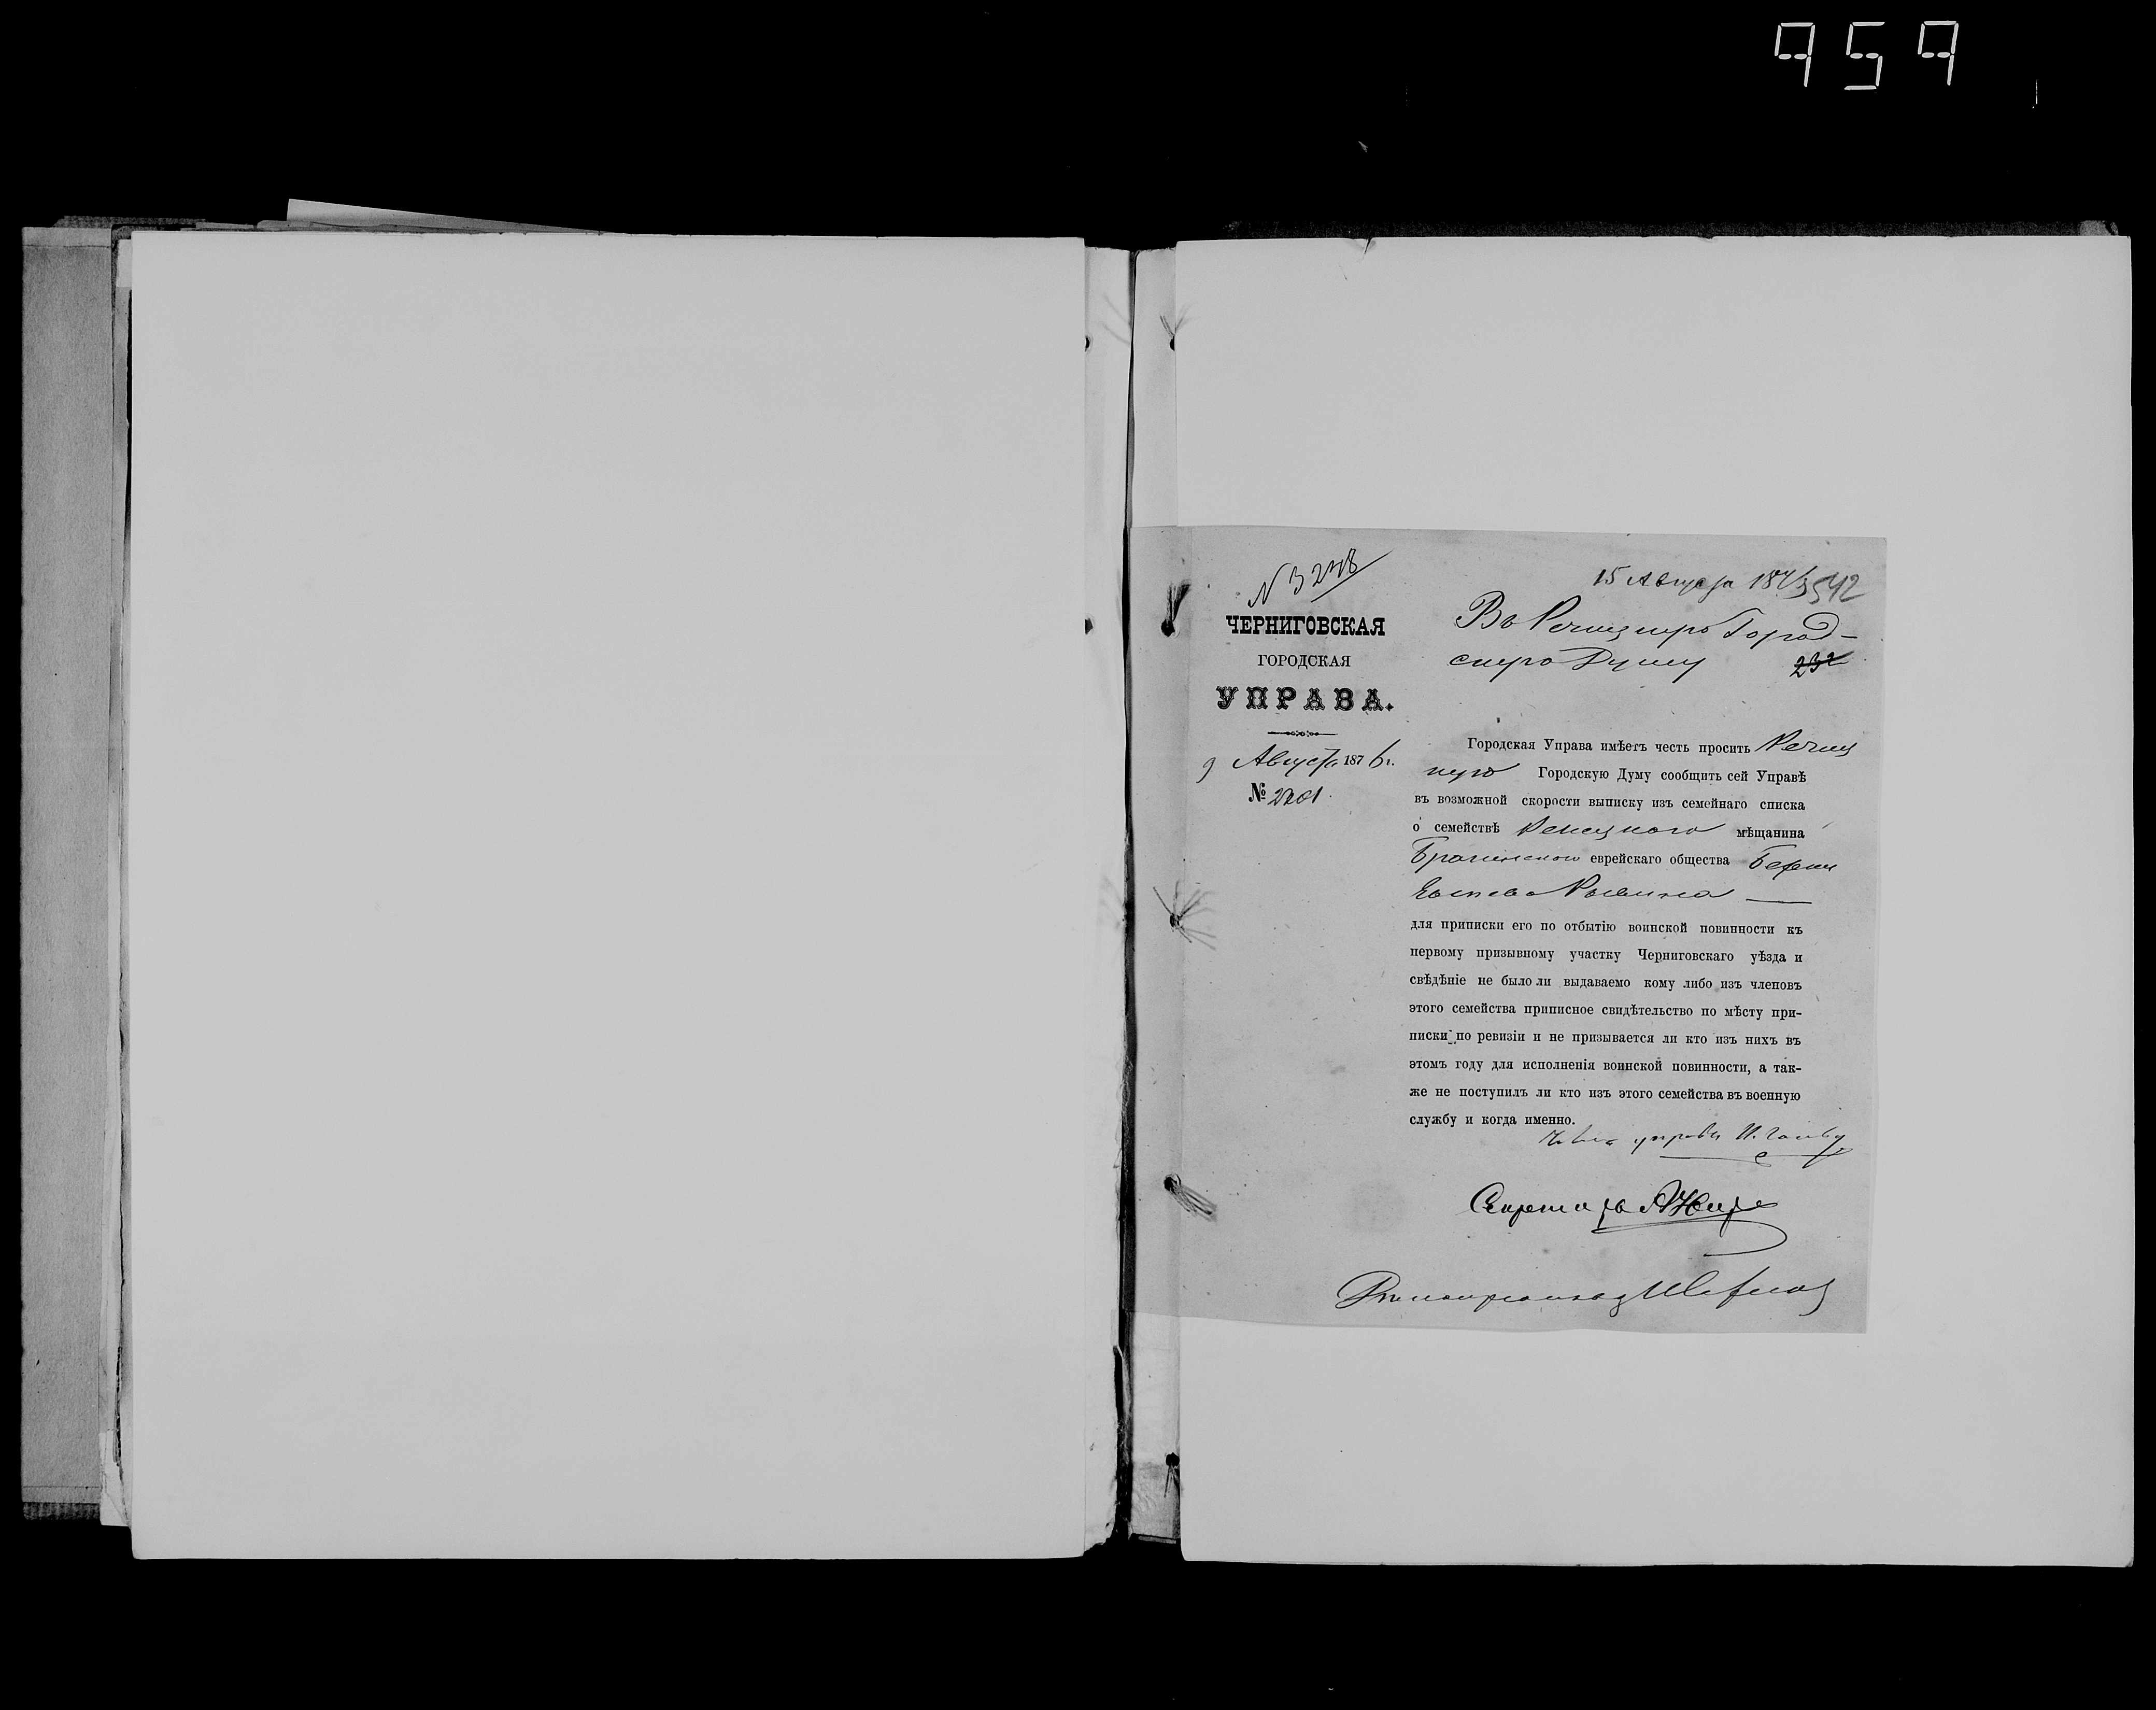 959
N 3248
15 Августа 1876
542
ЧЕРНИГОВСКАЯ
ГОРОДСКАЯ
УПРАВА.
9 Августа 1876 г.
№
Въ Речицкую Город-
скую Думу
232
Городская Управа имѣетъ честь просить Речиц
кую Городскую Думу сообщить сей Управѣ
въ возможной скорости выписку изъ семейнаго списка
о семействѣ Речицкого мѣщанина
Брагинского еврейскаго общества Берки
для приписки его по отбытію воинской повинности къ
первому призывному участку Черниговскаго уѣзда и
свѣдѣніе не было ли выдаваемо кому либо изъ членовъ
этого семейства приписное свидѣтельство по мѣсту при-
писки по ревизіи и не призывается ли кто изъ нихъ въ
этомъ году для исполненія воинской повинности, а так-
же не поступилъ ли кто изъ этого семейства въ военную
службу и когда именно.
управы
Секретарь